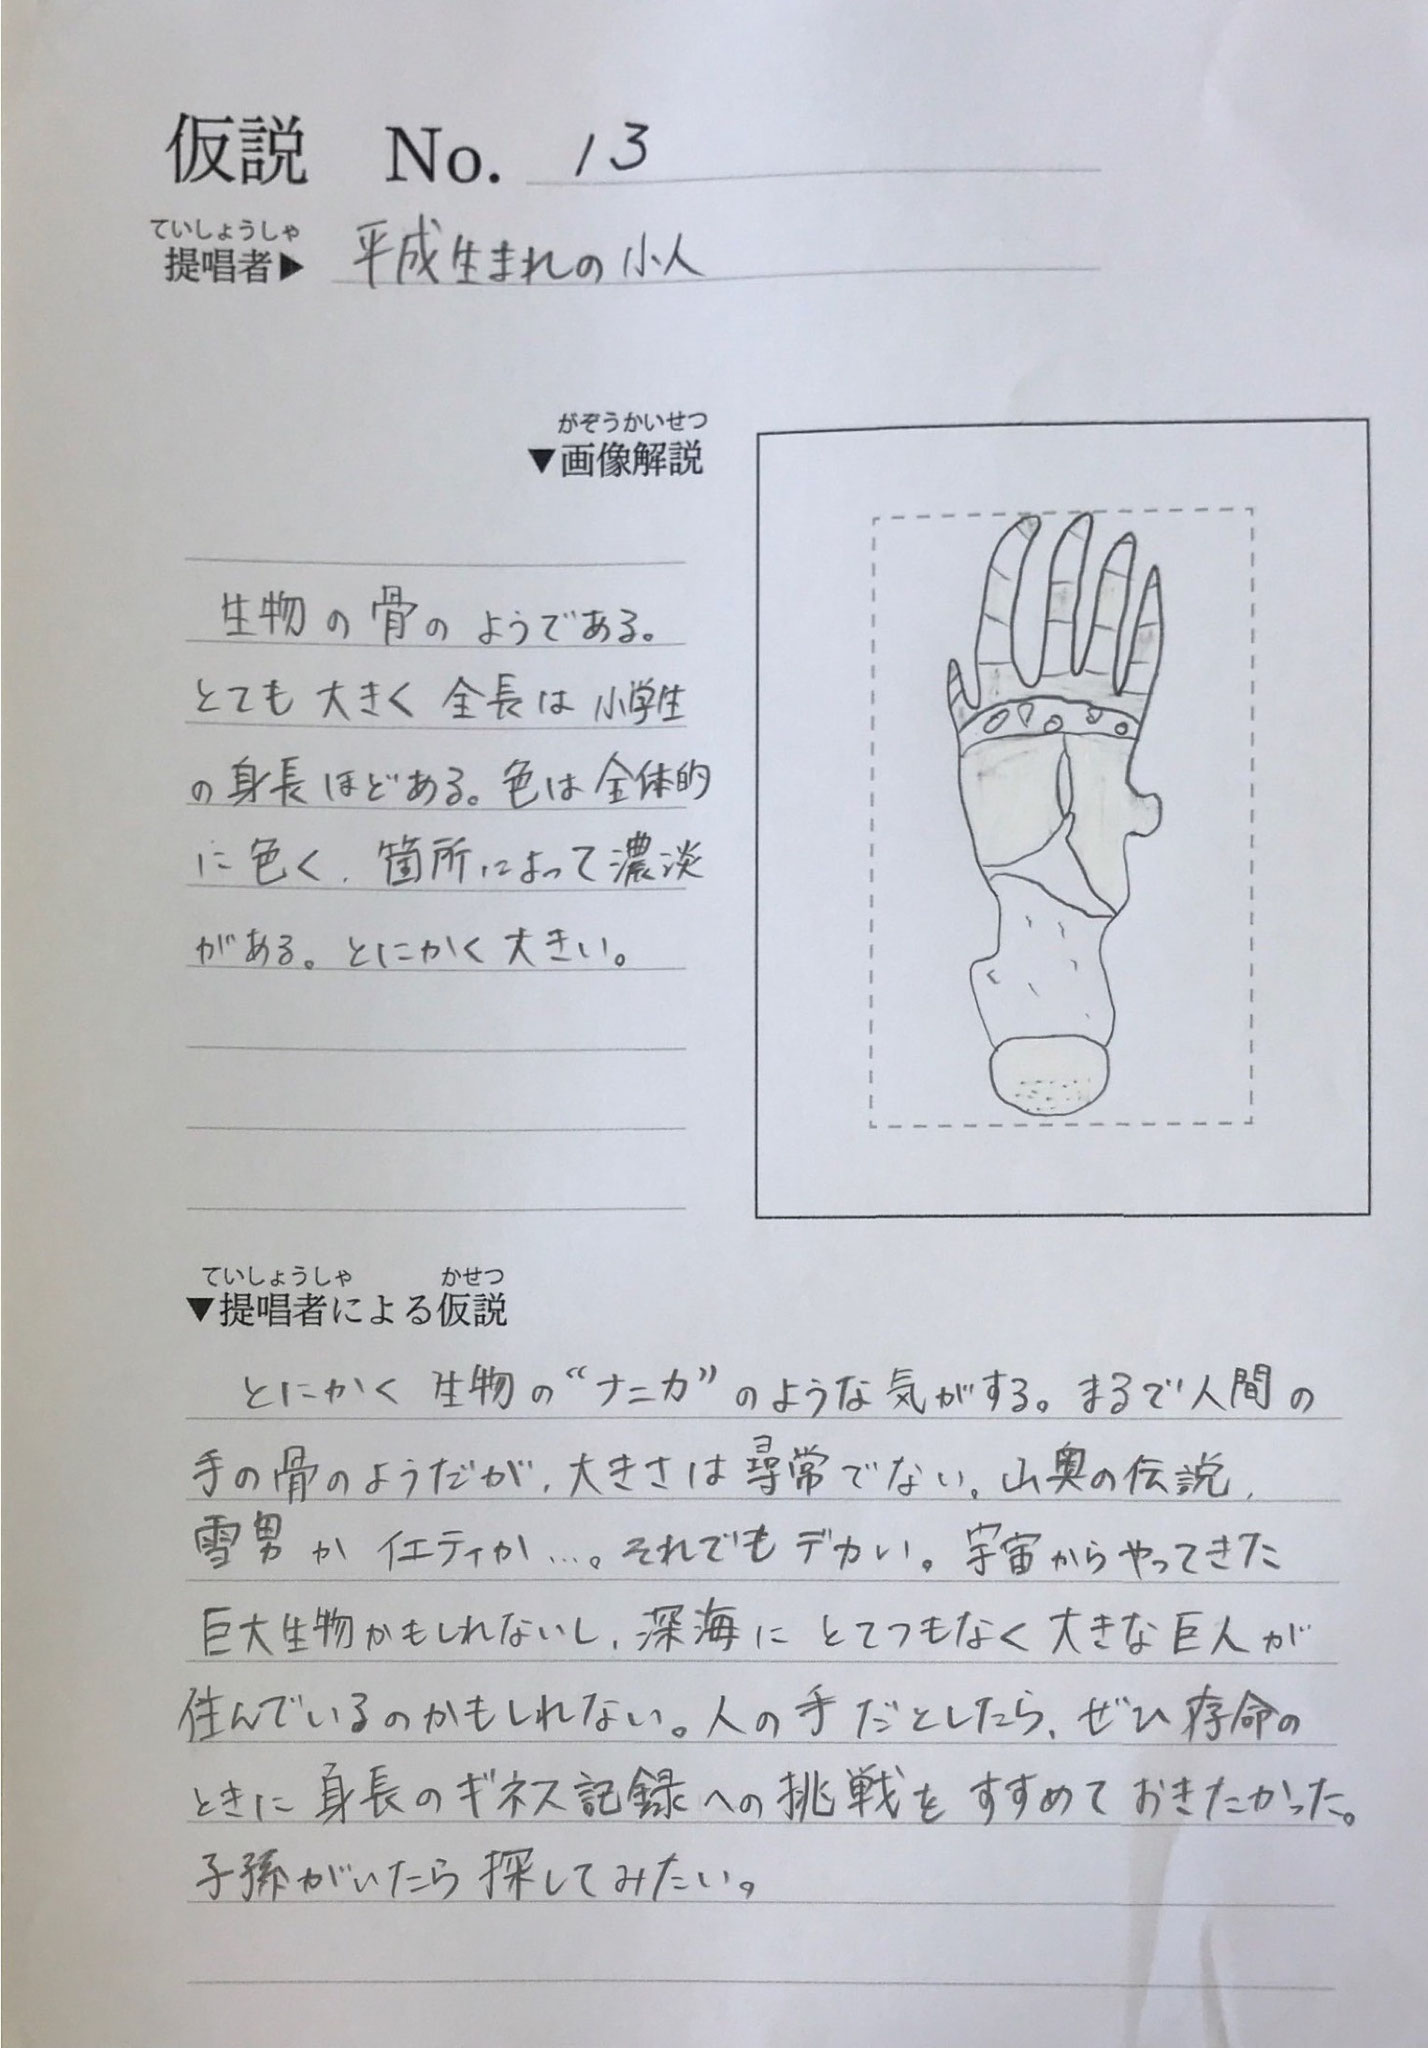 仮説 No. 13
ていしょうしゃ
提唱者▶ 平成生まれの小人
がぞうかいせつ
▼画像解説
生物の骨のようである。
とても大きく全長は小学生
の身長ほどある。色は全体的
に色く、箇所によって濃淡
がある。とにかく大きい。
ていしょうしゃ かせつ
▼提唱者による仮説
とにかく生物の“ナニカ”のような気がする。まるで人間の
手の骨のようだが、大きさは尋常でない。山奥の伝説、
雪男かイエティか…。それでもデカい。宇宙からやってきた
巨大生物かもしれないし、深海にとてつもなく大きな巨人が
住んでいるのかもしれない。人の手だとしたら、ぜひ存命の
ときに身長のギネス記録への挑戦をすすめておきたかった。
子孫がいたら探してみたい。